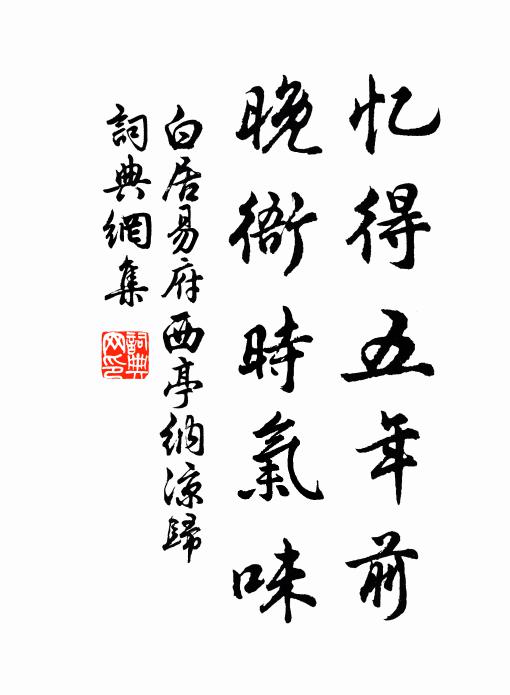 忆得五年前
晚衙時氣味
白居易府西亭納涼歸
詞典網集
詞典网印